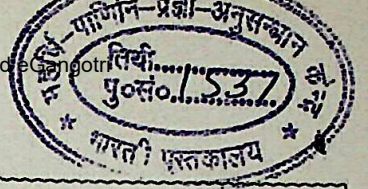 महर्षि-पाणिनि-प्रज्ञा-अनुसन्धान
eGangotri
तिथी............
पु०सं०....1537
* भारती पुस्तकालय *